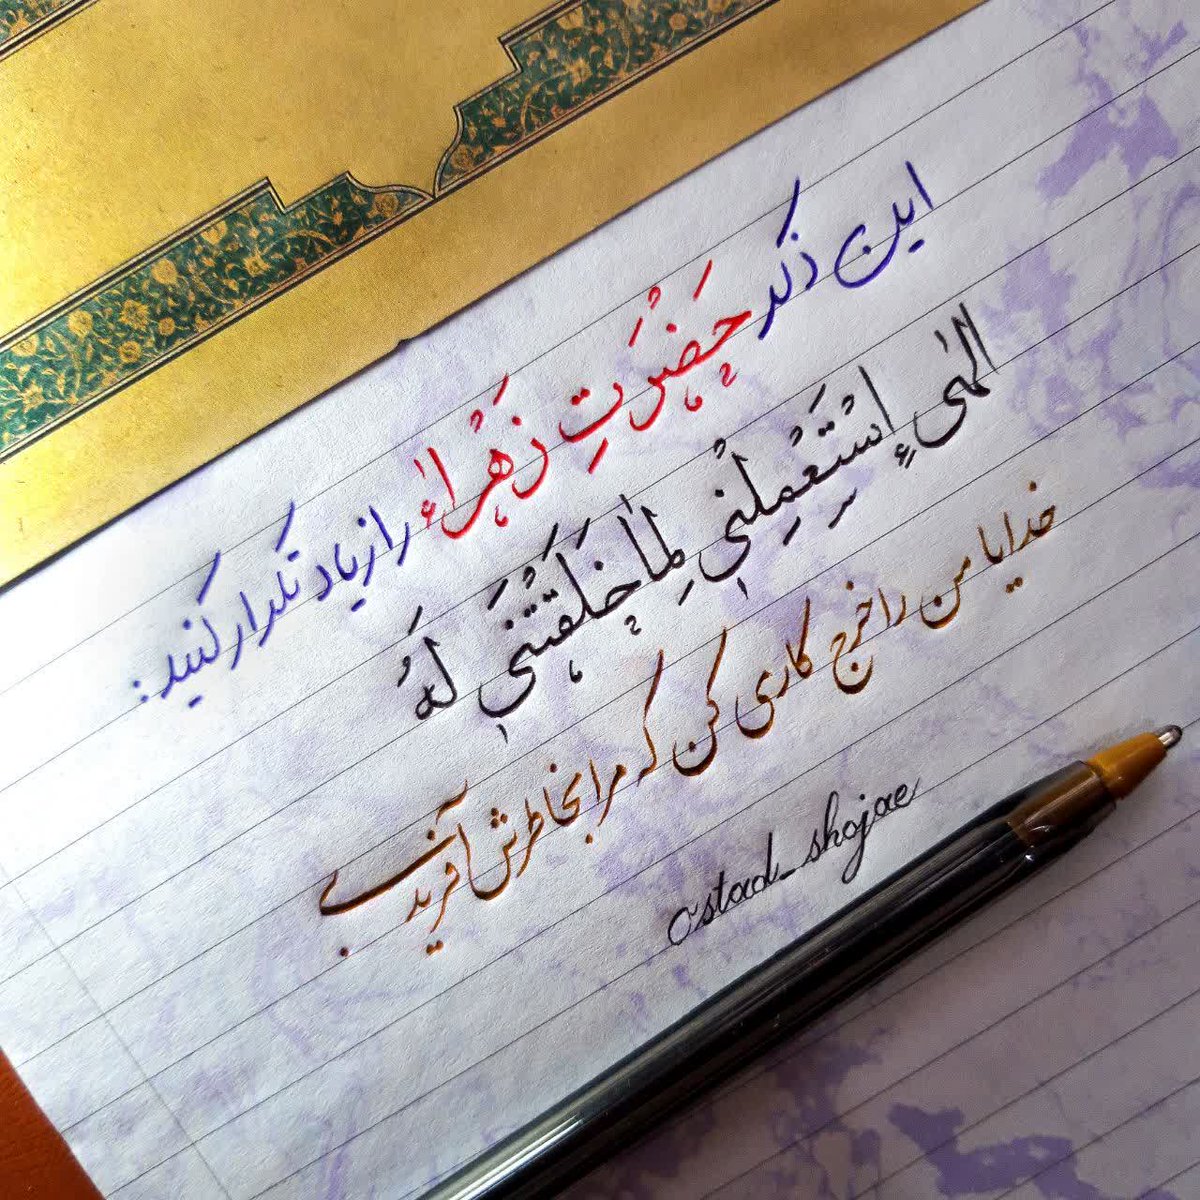 این ذکر حَضْرَتِ زَهْراء را زیاد تکرار کنید:
الهٰی اِسْتَعْمِلْنی لِمٰا خَلَقْتَنی لَهُ
خدایا من را خرج کاری کن که مرا بخاطرش آفریدی
ostad_shojae